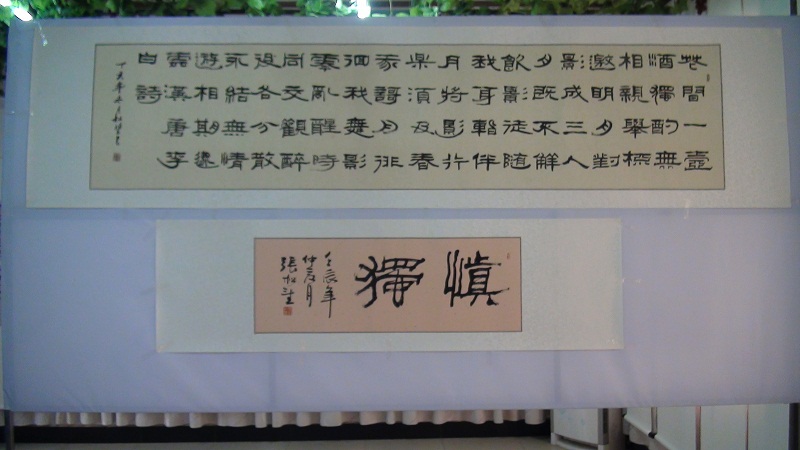 花間一壺
酒獨酌無
相親舉杯
邀明月對
影成三人
月既不解
飲影徒隨
我身暫伴
月將影行
樂須及春
我謌月徘
徊我舞影
零亂醒時
同交歡醉
後各分散
永結無情
遊相期邈
雲漢唐李
白詩
丁亥年
慎獨
壬辰年
仲夏月
張松